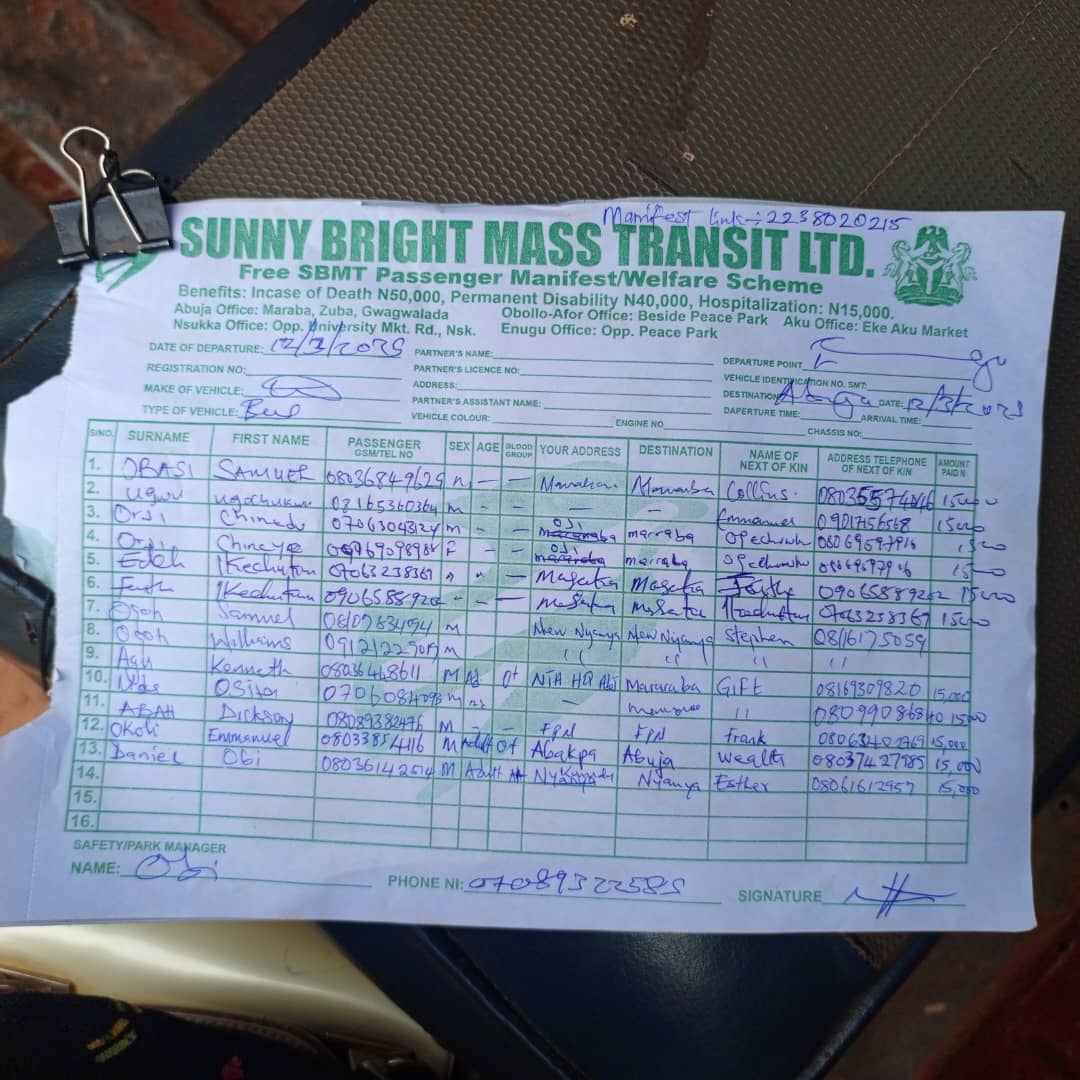 Manifest link:- 2238020215
SUNNY BRIGHT MASS TRANSIT LTD.
Free SBMT Passenger Manifest/Welfare Scheme
Benefits: Incase of Death N50,000, Permanent Disability N40,000, Hospitalization: N15,000.
Abuja Office: Maraba, Zuba, Gwagwalada Obollo-Afor Office: Beside Peace Park Aku Office: Eke Aku Market
Nsukka Office: Opp. University Mkt. Rd., Nsk. Enugu Office: Opp. Peace Park
DATE OF DEPARTURE: 12/3/2025 PARTNER'S NAME: DEPARTURE POINT
REGISTRATION NO: PARTNER'S LICENCE NO: VEHICLE IDENTIFICATION NO. SMT:
MAKE OF VEHICLE: ADDRESS: DESTINATION Abuja DATE: 12/3/2025
TYPE OF VEHICLE: Bus PARTNER'S ASSISTANT NAME: DAPERTURE TIME: ARRIVAL TIME:
VEHICLE COLOUR: ENGINE NO CHASSIS NO:
S/NO. SURNAME FIRST NAME PASSENGER GSM/TEL NO SEX AGE BLOOD GROUP YOUR ADDRESS DESTINATION NAME OF NEXT OF KIN ADDRESS TELEPHONE OF NEXT OF KIN AMOUNT PAID N
1. OBASI SAMUEL 08036849625 - - Collins.
2. Ugwu Ugochukwu 08165360364 m - - - - Emmanuel 09017156568
3. Orji Chinedu m - - Oji marraba
4. Orji Chinenye F - - Oji marraba
5. Edeh Ikechukwu 07063238369 - Masaka Masaka Faith
6. Faith Ikechukwu - - - Masaka Masaka Ikechukwu 07063238369
7. Ogoh Samuel m New Nyanya New Nyanya Stephen 08116175059
8. Ogoh Williams 09121229019 m " " " "
9. Agu Kenneth 08036448611 M Ad O+ NTA HQ Abj Mararaba Gift 08169309820 15,000
10. Osita m - " 15000
11. ABAH Dickson 08089382476 M - - FPN FPN Frank 15,000
12. Okoli Emmanuel 08033854116 M Adult O+ Abakpa Abuja Wealth 08037427785 15,000
13. Daniel Obi 08036142514 M Adult Nyanya Esther 08061612957 15,000
14.
15.
16.
SAFETY/PARK MANAGER
NAME: Obi PHONE NI: 07089322585 SIGNATURE